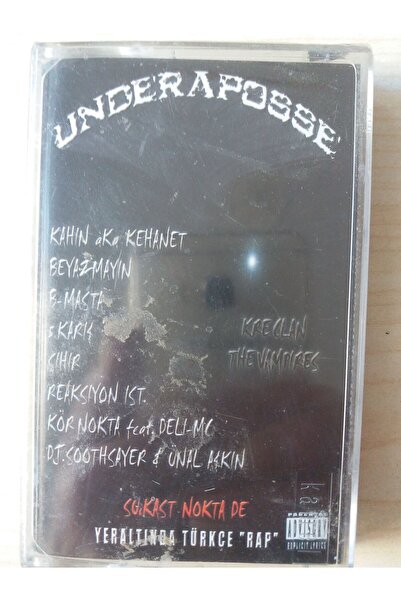 UNDERAPOSSE
KAHIN aKa KEHANET
BEYAZMAYIN
B-MASTA
5.KARIŞ
SIHIR
REAKSIYON IST.
KÖR NOKTA feat. DELI-MC
DJ.SOOTHSAYER & ÜNAL AŞKIN
KRECLAN
THE VAMPIRES
SU.KAST NOKTA DE
YERALTINDA TÜRKCE "RAP"
PARENTAL
ADVISORY
EXPLICIT LYRICS